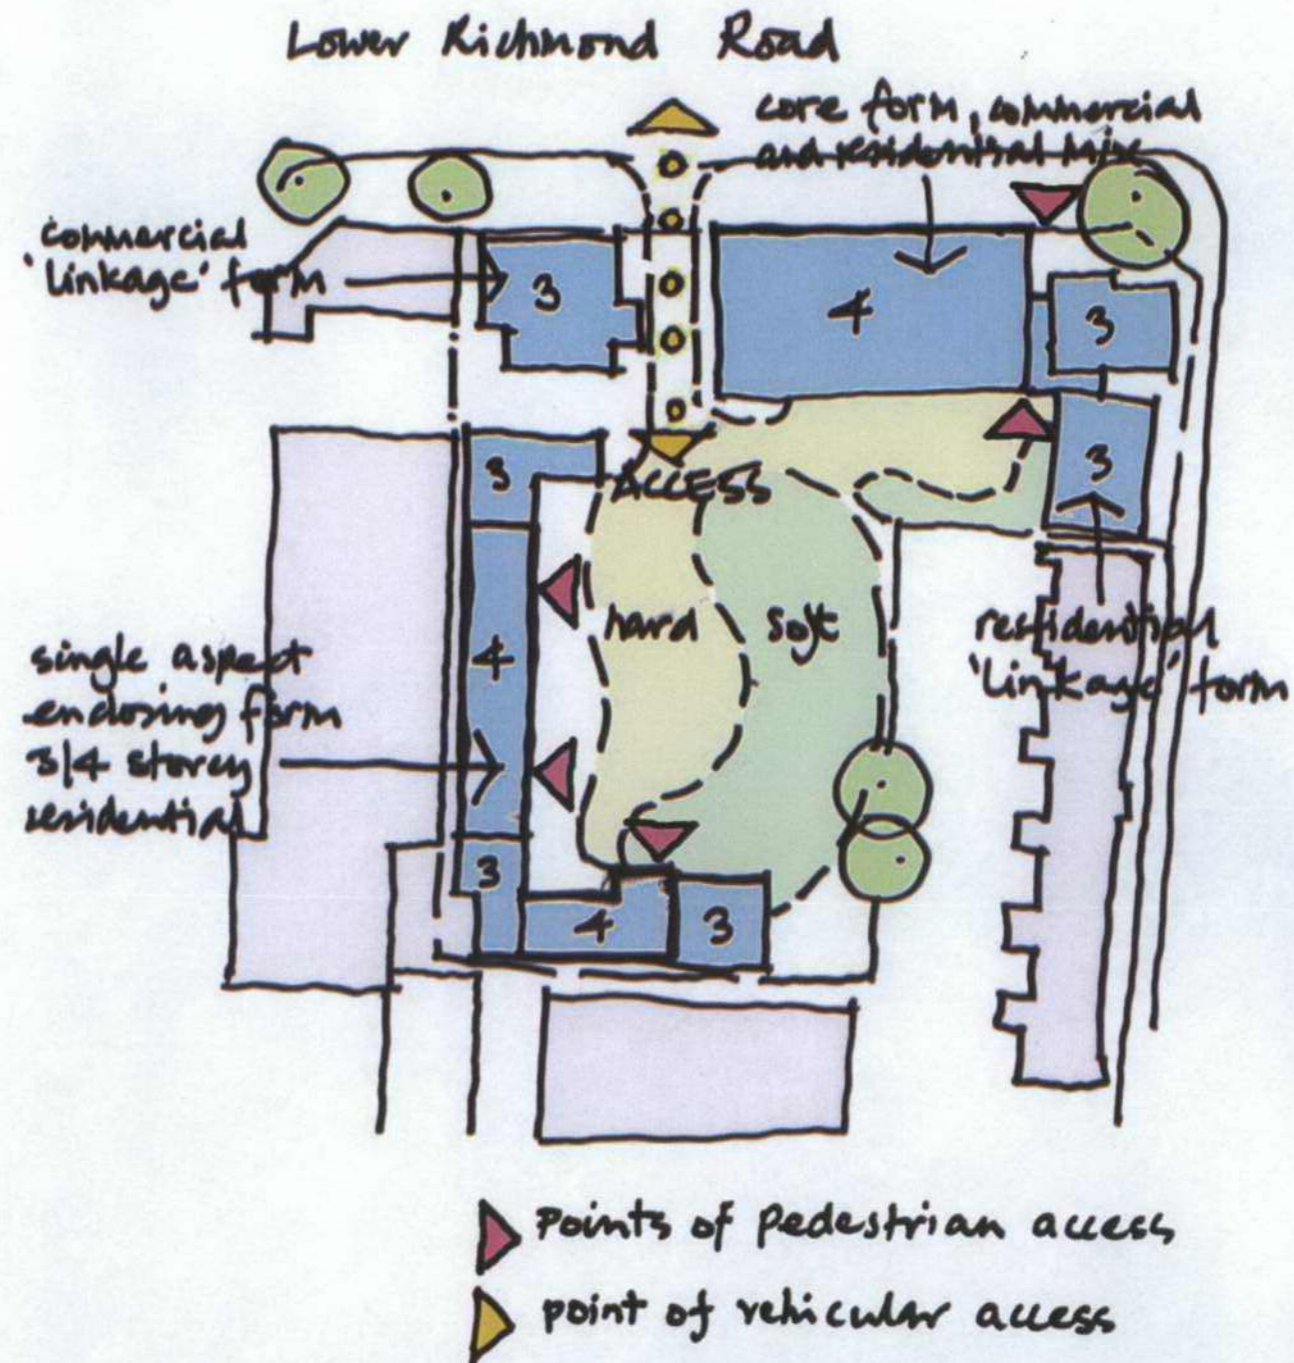 Lower Richmond Road
core form, commercial
and residential mix
commercial
'linkage' form
3
4
3
3
3
ACCESS
hard
soft
4
residential
'linkage' form
single aspect
enclosing form
3/4 storey
residential
3
4
3
Points of pedestrian access
point of vehicular access